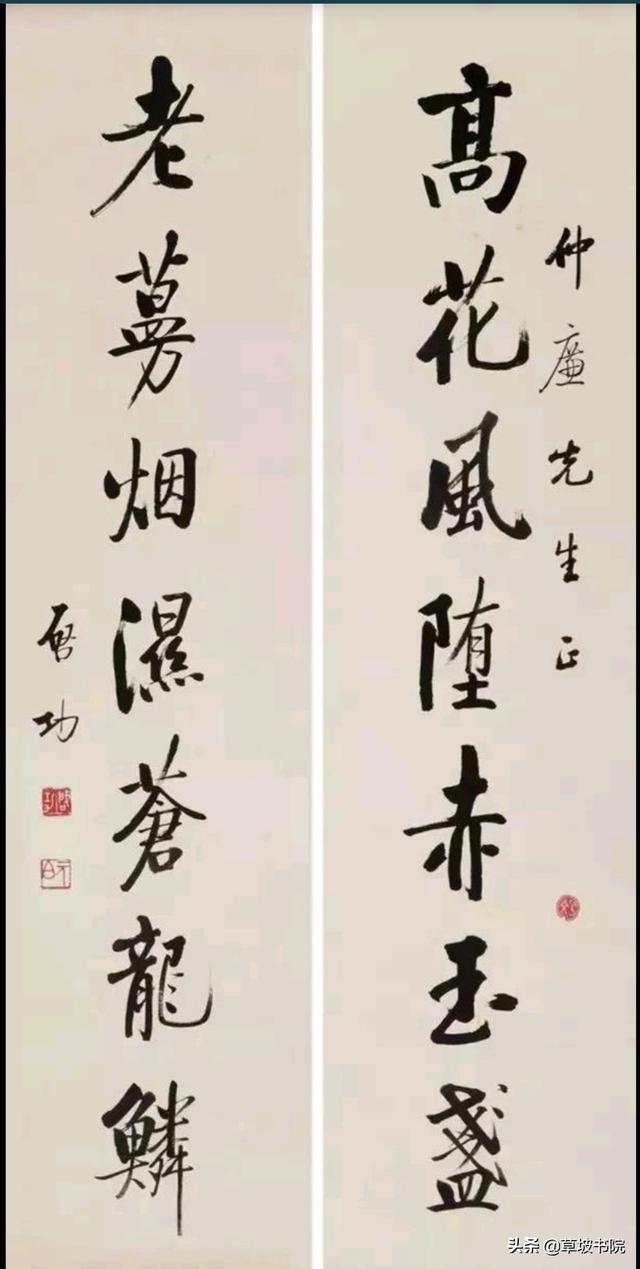 仲廉先生正
高花風堕赤玉盞
老蔓烟濕蒼龍鱗
啓功
头条 @草坡书院